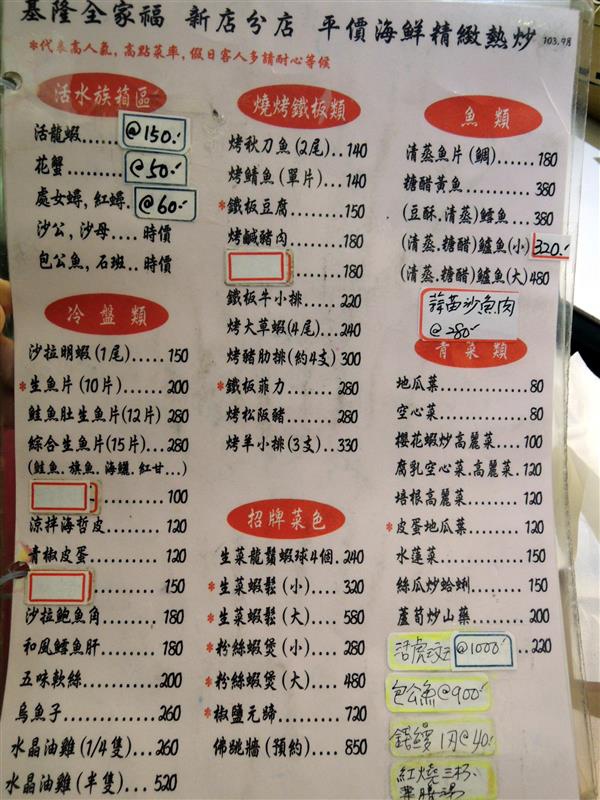 基隆全家福 新店分店 平價海鮮精緻熱炒 103.9月
*代表高人氣,高點菜率,假日客人多請耐心等候
活水族箱區
活龍蝦......@150.-
花蟹......@50.-
處女蟳.紅蟳.@60.-
沙公,沙母....時價
包公魚,石斑..時價
冷盤類
沙拉明蝦(1尾).....150
*生魚片(10片)......200
鮭魚肚生魚片(12片)280
綜合生魚片(15片)...280
(鮭魚.旗魚.海鱺.紅甘...)
.........100
涼拌海哲皮........120
青椒皮蛋..........120
.........150
沙拉鮑魚角.......180
和風鱈魚肝.......180
五味軟絲.........200
烏魚子...........260
水晶油雞(1/4隻)...260
水晶油雞(半隻)...520
燒烤鐵板類
烤秋刀魚(2尾)..140
烤鯖魚(單片)...140
*鐵板豆腐.......150
烤鹹豬肉.......180
.......180
鐵板牛小排.....220
烤大草蝦(4尾)..240
烤豬肋排(約4支)300
*鐵板菲力.......280
烤松阪豬.......280
烤羊小排(3支)..330
招牌菜色
生菜龍鬚蝦球4個.240
*生菜蝦鬆(小)....320
*生菜蝦鬆(大)....580
*粉絲蝦煲(小)....280
*粉絲蝦煲(大)....480
*椒鹽元蹄........720
佛跳牆(預約)....850
魚類
清蒸魚片(鯛)......180
糖醋黃魚..........380
(豆酥.清蒸)鱈魚...380
(清蒸.糖醋)鱸魚(小)320.-
(清蒸.糖醋)鱸魚(大)480
蒜苗沙魚肉
@280.-
青菜類
地瓜葉............80
空心菜............80
櫻花蝦炒高麗菜....100
腐乳空心菜.高麗菜.120
培根高麗菜........120
*皮蛋地瓜葉........120
水蓮菜............150
絲瓜炒蛤蜊........150
蘆荀炒山藥........200
活虎斑@1000.-..220
包公魚@900.-
錢鰻1斤@40.-
紅燒.三杯.